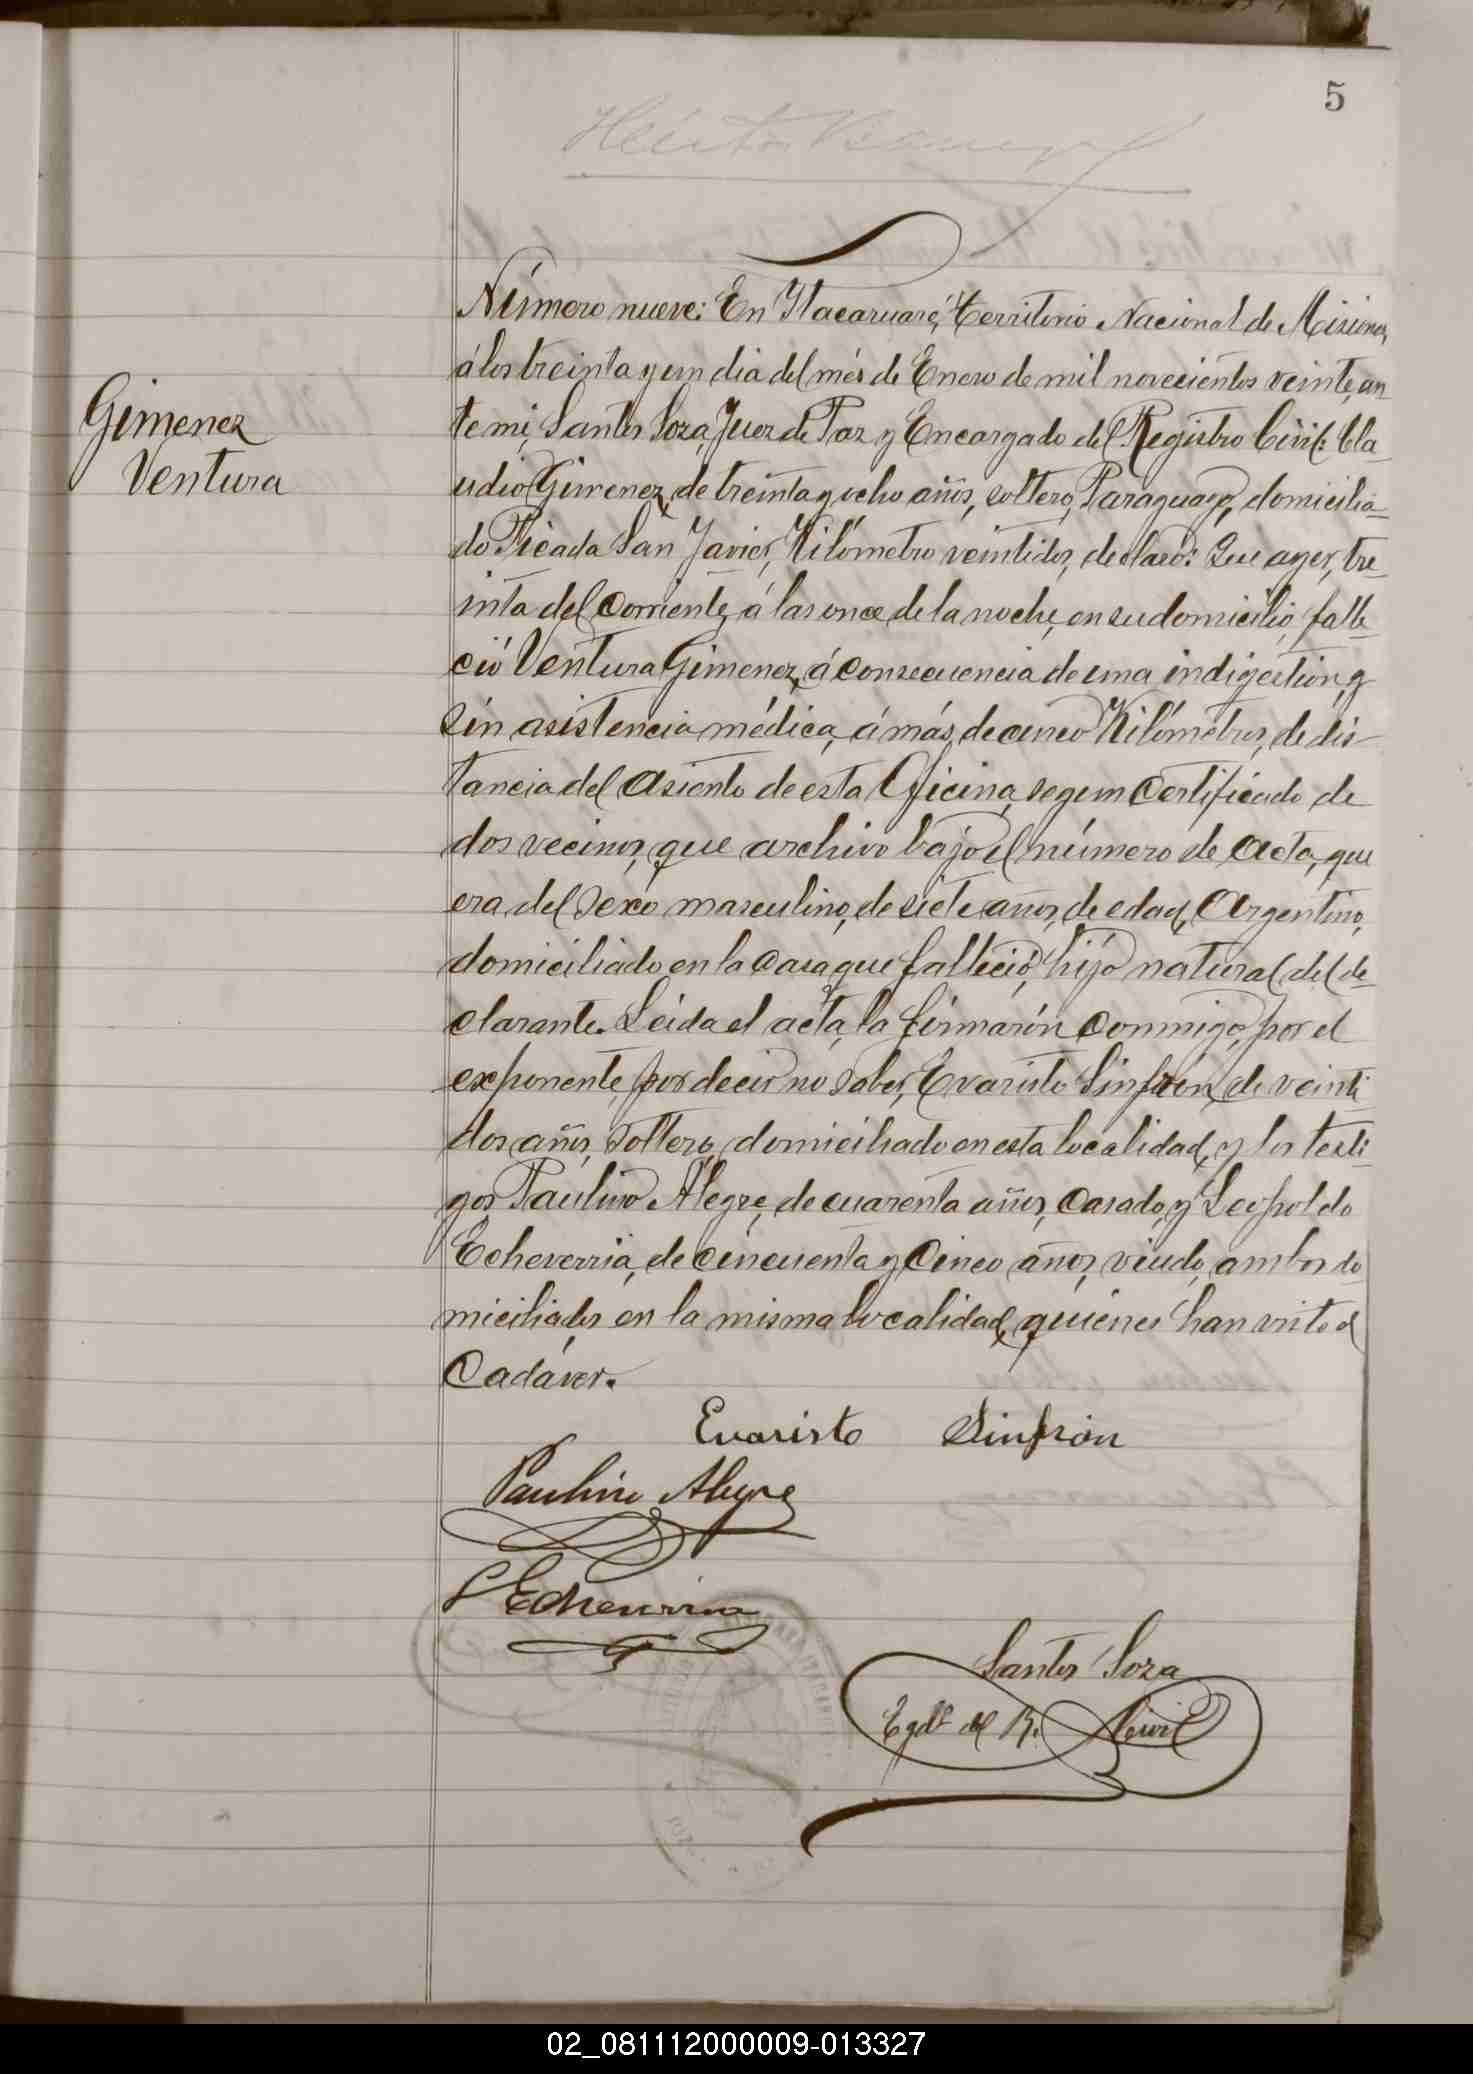 5
Gimenez
Ventura
Número nueve: En Itacaruaré, territorio Nacional de Misiones,
á los treinta y un dia del més de Enero de mil novecientos veinte, an
te mi, Santos Soza, Juez de Paz y Encargado del Registro Civil: Cla-
udio Gimenez, de treinta y ocho años, soltero, Paraguayo, domicilia-
do Picada San Javier, Kilómetro veintidos, declaró: Que ayer, tre-
inta del corriente, á las once de la noche, en su domicilio, falle-
ció Ventura Gimenez, á consecuencia de una indigestión, y
sin asistencia médica, á más de cinco Kilómetros, de dis-
tancia del asiento de esta Oficina, segun certificado de
dos vecinos, que archivo bajo el número de acta, que
era del sexo masculino, de siete años, de edad, Argentino,
domiciliado en la casa que falleció, hijo natural del de-
clarante. Leida el acta, la firmarón conmigo, por el
exponente, por decir no saber, Evaristo Sinfrón, de veinti
dos años, soltero, domiciliado en esta localidad, y los testi-
gos Paulino Alegre, de cuarenta años, casado, y Leopoldo
Echeverria, de cincuenta y cinco años, viudo, ambos do
miciliados en la misma localidad, quiénes han visto el
cadáver.
Evaristo Sinfrón
Paulino Alegre
L Echeverria
Santos Soza
Egdº del R. Civil
02_081112000009-013327